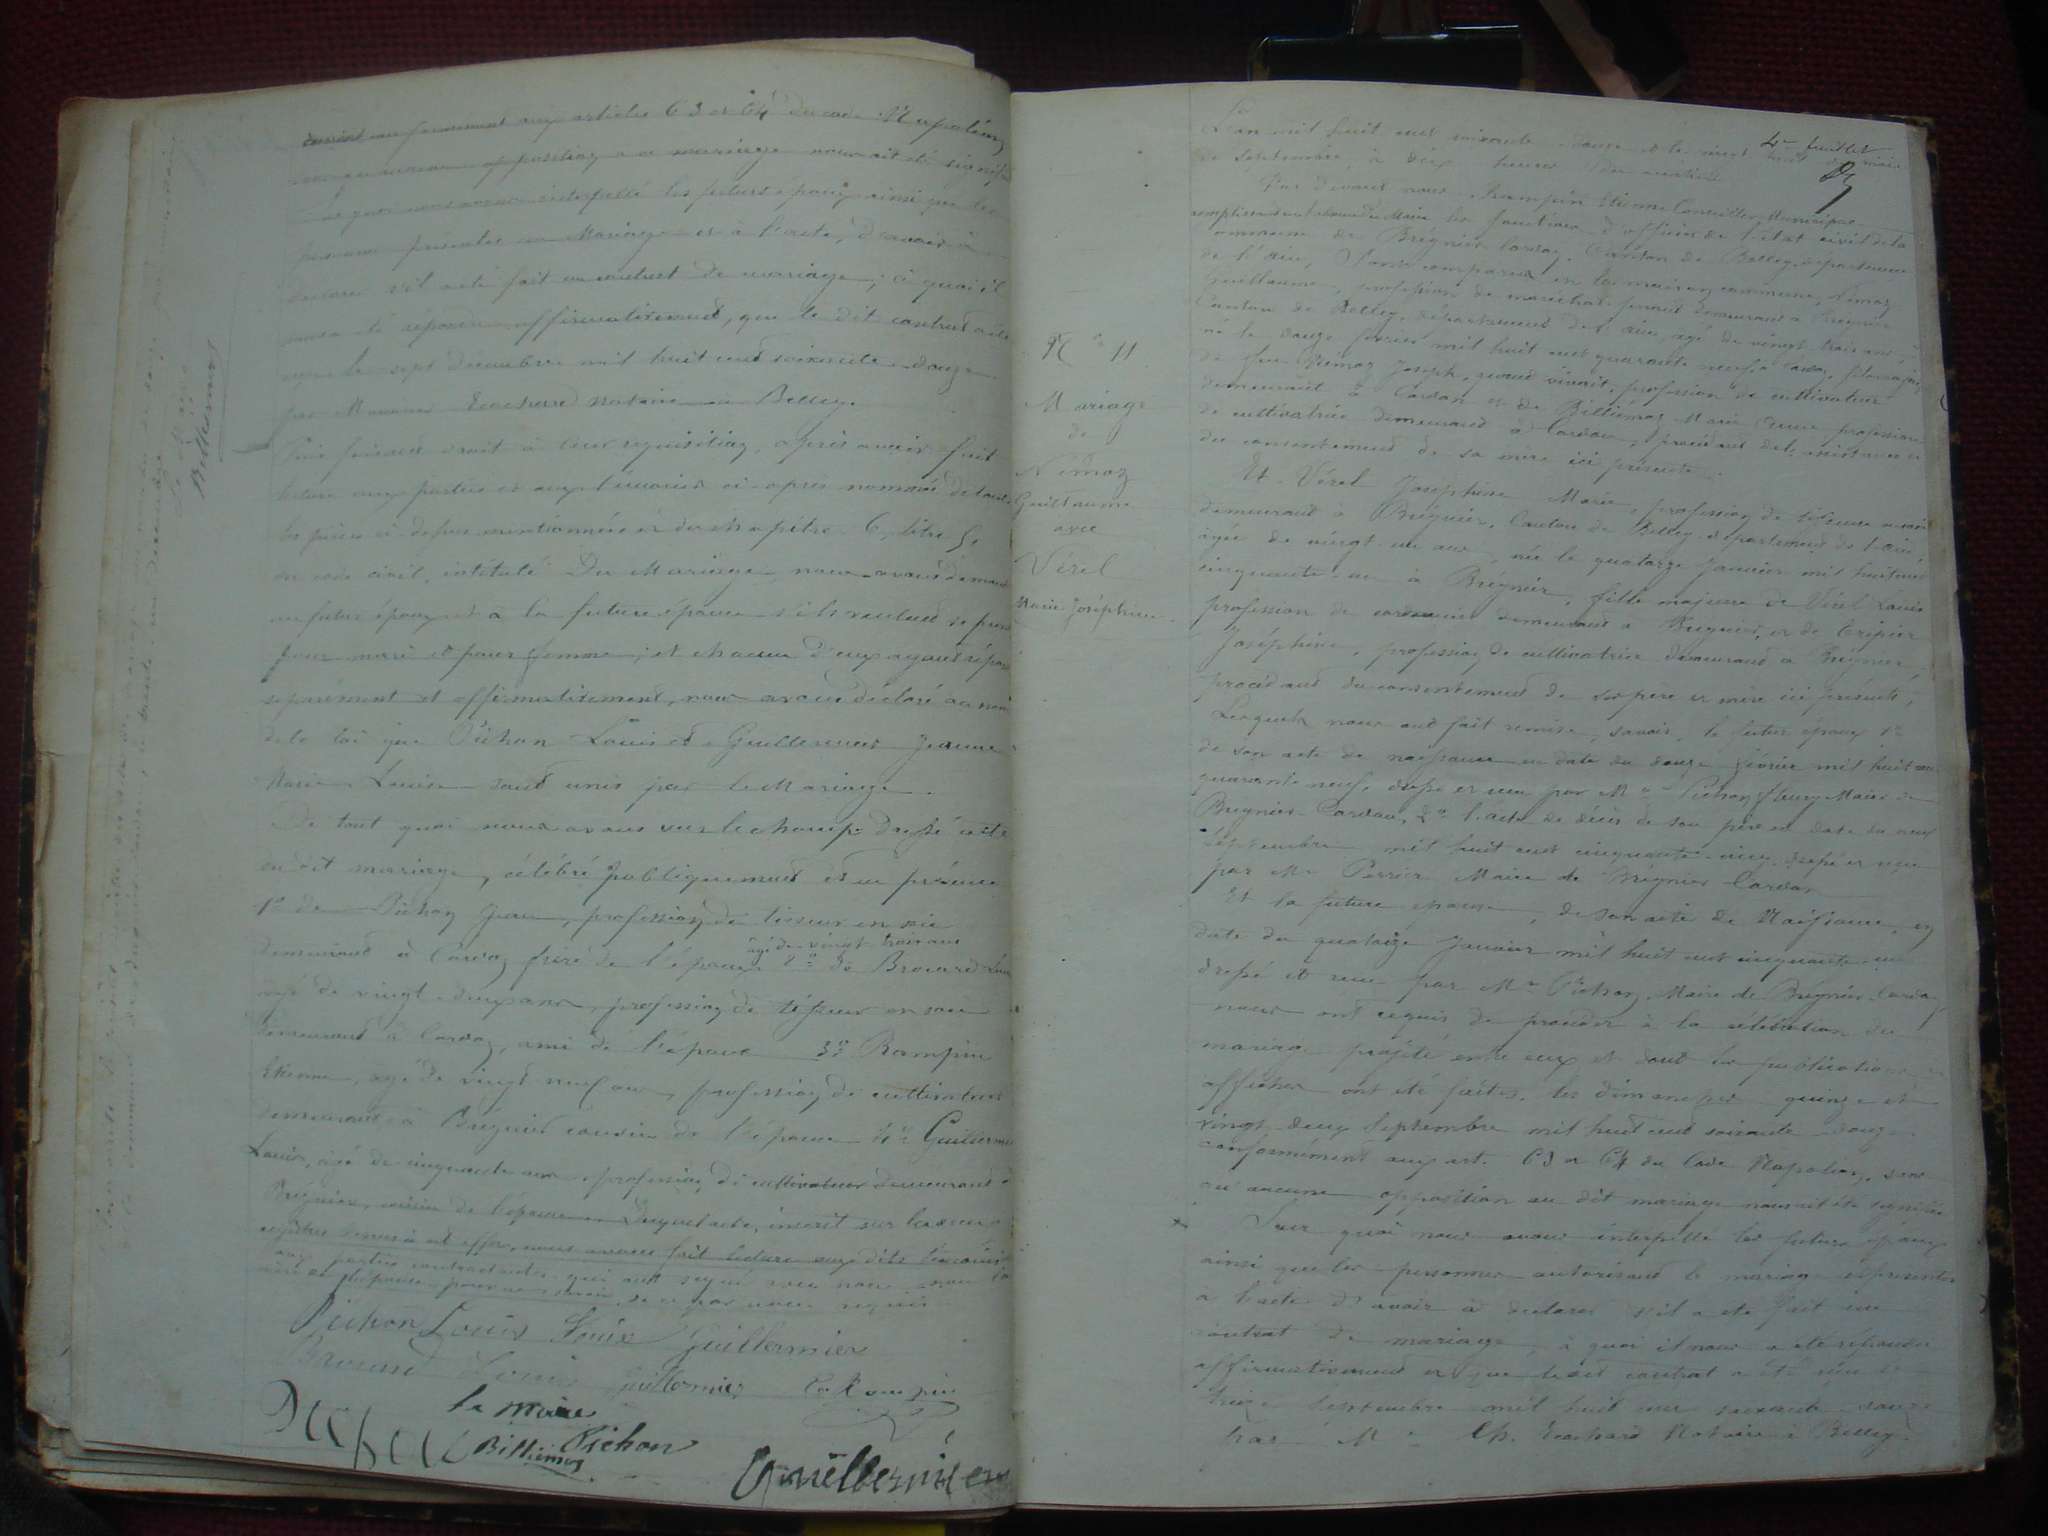 conformément aux articles 63 et 64 du code Napoléon
opposition à ce mariage nous ait été signifiée
Sur quoi nous avons interpellé les futurs époux ainsi que les
personnes présentes au Mariage et à l'acte, d'avoir à
déclarer s'il a été fait un contrat de mariage; à quoi il
nous a été répondu affirmativement, que le dit contrat a été
reçu le sept décembre mil huit cent soixante douze
par Maître notaire à Belley.
Puis faisant droit à leur requisition, après avoir fait
lecture aux parties et aux témoins ci-après nommés de toutes
les pièces ci-dessus mentionnées et du chapitre 6, titre 5,
du code civil, intitulé Du Mariage, nous avons demandé
au futur époux et à la future épouse s'ils veulent se prendre
pour mari et pour femme; et chacun d'eux ayant répondu
séparément et affirmativement, nous avons déclaré au nom
de la loi que Pichon Louis et Guillermier Jeanne
Marie Louise sont unis par le Mariage.
De tout quoi nous avons sur le champ dressé acte
du dit mariage, célébré publiquement et en présence
1° de Pichon profession de tisseur en soie
âgé de vingt trois ans
demeurant à Cordon frère de l'époux 2° de Brocard Louis
âgé de vingt deux ans, profession de tisseur en soie
demeurant à Cordon, ami de l'époux 3° Rampin
Etienne, âgé de vingt neuf ans, profession de cultivateur
demeurant à Brégnier cousin de l'épouse 4° Guillermier
Louis, âgé de cinquante ans profession de cultivateur demeurant à
Brégnier, cousin de l'épouse Duquel acte, inscrit sur les deux
registres tenus à cet effet, nous avons fait lecture aux dits témoins
aux parties contractantes qui ont signé avec nous
Pichon Louis Louise Guillermier
Brocard Louis Guillermier Rampin
le maire
Billiémaz Pichon
Guillermier
Le Maire
Billiémaz
4me feuillet
N° 11
Mariage
de
Némoz
Guillaume
avec
Vérel
Marie Joséphine
L'an mil huit cent soixante douze et le vingt huit du mois
de Septembre, à dix heures du matin
Par devant nous Rampin Etienne Conseiller Municipal
remplissant du Maire les fonctions d'officier de l'état civil de la
commune de Brégnier Cordon, Canton de Belley, département
de l'Ain, Sont comparus en la maison commune, Némoz
Guillaume, profession de maréchal ferrant demeurant à Brégnier
Canton de Belley, département de l'Ain, âgé de vingt trois ans,
né le douze février mil huit cent quarante neuf, à Cordon, fils majeur
de feu Némoz Joseph, quand vivait, profession de cultivateur
demeurant à Cordon et de Billiémaz Marie profession
de cultivatrice demeurant à Cordon, procédant de l'assistance et
du consentement de sa mère ici présente.
Et Vérel Joséphine Marie, profession de tisseuse en soie
demeurant à Brégnier, Canton de Belley, département de l'Ain,
âgée de vingt un ans, née le quatorze Janvier mil huit cent
cinquante-un à Brégnier, fille majeure de Vérel Louis
profession de cordonnier demeurant à Brégnier, et de Tripier
Joséphine, profession de cultivatrice demeurant à Brégnier,
procédant du consentement de ses père et mère ici présents,
Lesquels nous ont fait remise, savoir, le futur époux 1°
de son acte de naissance en date du douze février mil huit cent
quarante neuf, dressé et reçu par Mr Pichon Maire de
Brégnier-Cordon, 2° l'acte de décès de son père en date du neuf
septembre mil huit cent cinquante cinq dressé et reçu
par Mr Perrier Maire de Brégnier Cordon
Et la future épouse, de son acte de Naissance, en
date du quatorze Janvier mil huit cent cinquante-un
dressé et reçu par Mr Pichon, Maire de Brégnier-Cordon,
nous ont requis de procéder à la célébration du
mariage projeté entre eux et dont les publications
affiches ont été faites, les dimanches quinze et
vingt deux Septembre mil huit cent soixante douze
conformément aux art. 63 et 64 du Code Napoléon, sans
qu'aucune opposition au dit mariage nous ait été signifiée
Sur quoi nous avons interpellé les futurs époux
ainsi que les personnes autorisant le mariage et présentes
à l'acte d'avoir à déclarer s'il a été fait un
contrat de mariage, à quoi il nous a été répondu
affirmativement et que le dit contrat a été reçu le
treize Septembre mil huit cent soixante douze
par Me Ch. Notaire à Belley.